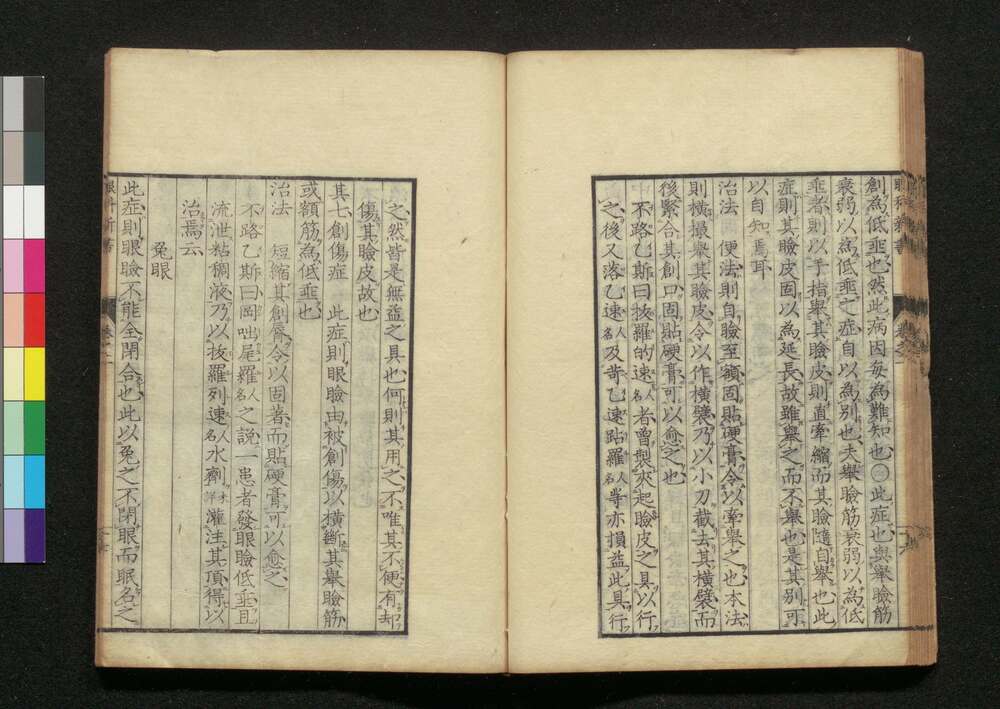 創為低垂也然此病因每為難知也〇此症也與舉瞼筋
衰弱以為低垂之症自以為別也夫舉瞼筋衰弱以為低
垂者則以手指舉其瞼皮則直牽縮而其瞼隨自舉也此
症則其瞼皮固以為延長故雖舉之而不舉也是其別可
以自知焉耳
治法　便法則自瞼至額固貼硬膏令以牽舉之也本法
則橫撮舉其瞼皮令以作橫襞乃以小刀截去其橫襞而
後緊合其創口固貼硬膏可以愈之也
不路乙斯曰拔羅的速人名者曾製夾起瞼皮之具以行
之後又落乙速人名及苛乙速跕羅人名等亦損益此具行
之然皆是無益之具也何則其用之不唯其不便有却
傷其瞼皮故也
其七創傷症　此症則眼瞼由被創傷以橫斷其舉瞼筋
或額筋為低垂也
治法　短縮其創脣令以固著而貼硬膏可以愈之
不路乙斯曰岡咄尾羅人名之說一患者發眼瞼低垂且
流泄粘稠液乃以拔羅列速人名水劑灌注其頂得以
治焉云
兔眼
此症則眼瞼不能全閉合也此以兔之不閉眼而眠名之
眼科新書